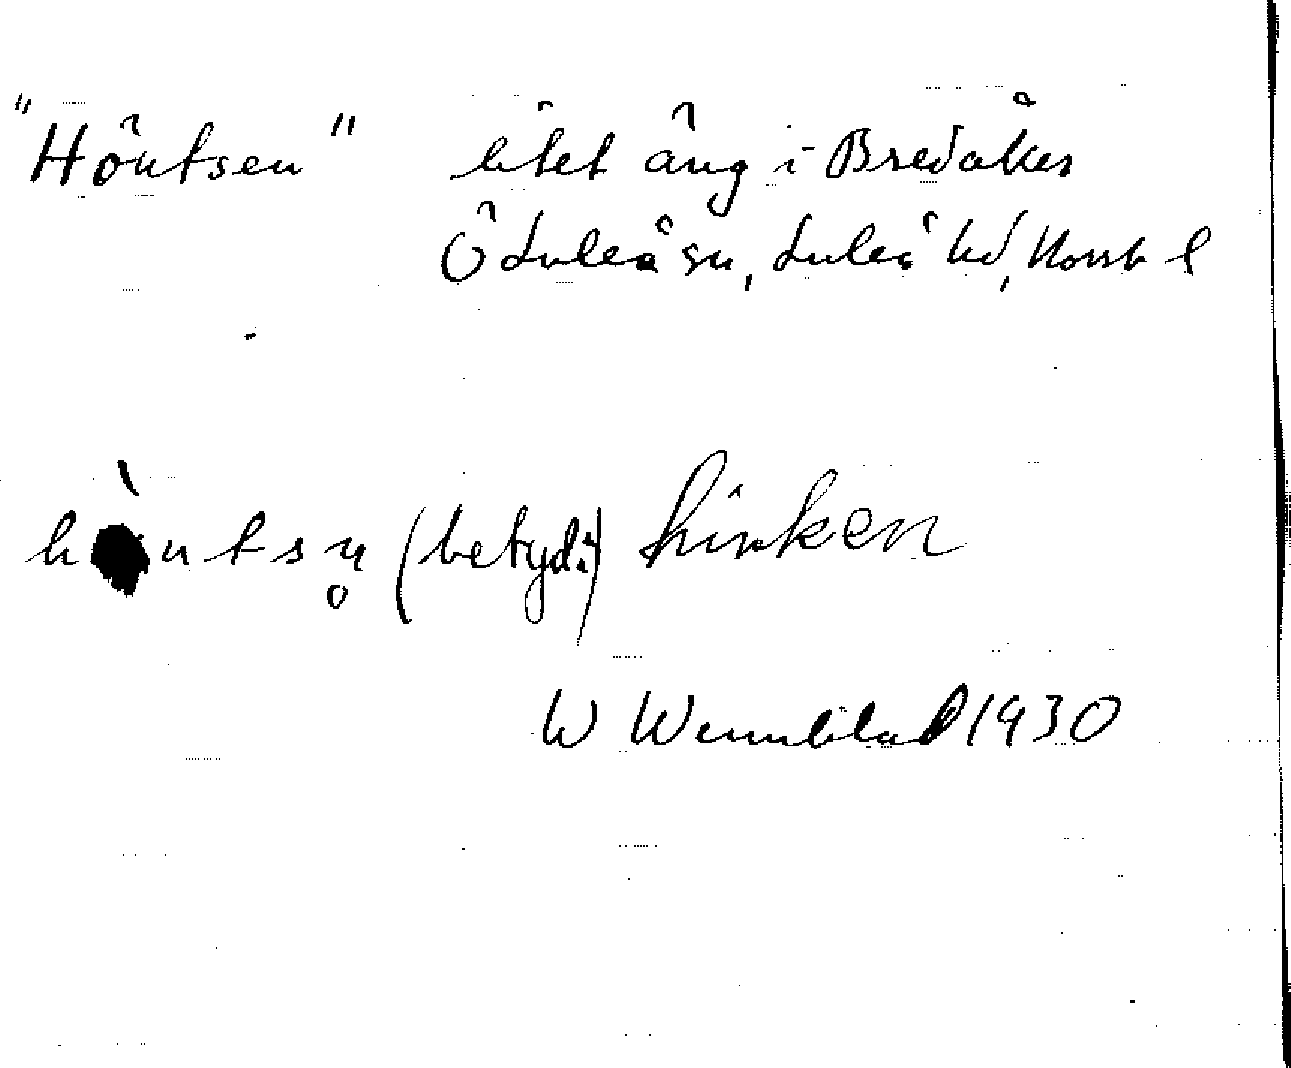 "Höntsen" litet äng i Bredåker
Ö Luleå sn, Luleå hd, Norrb l
ntsn̥ (betyd:) hinken
W Wennblad 1930